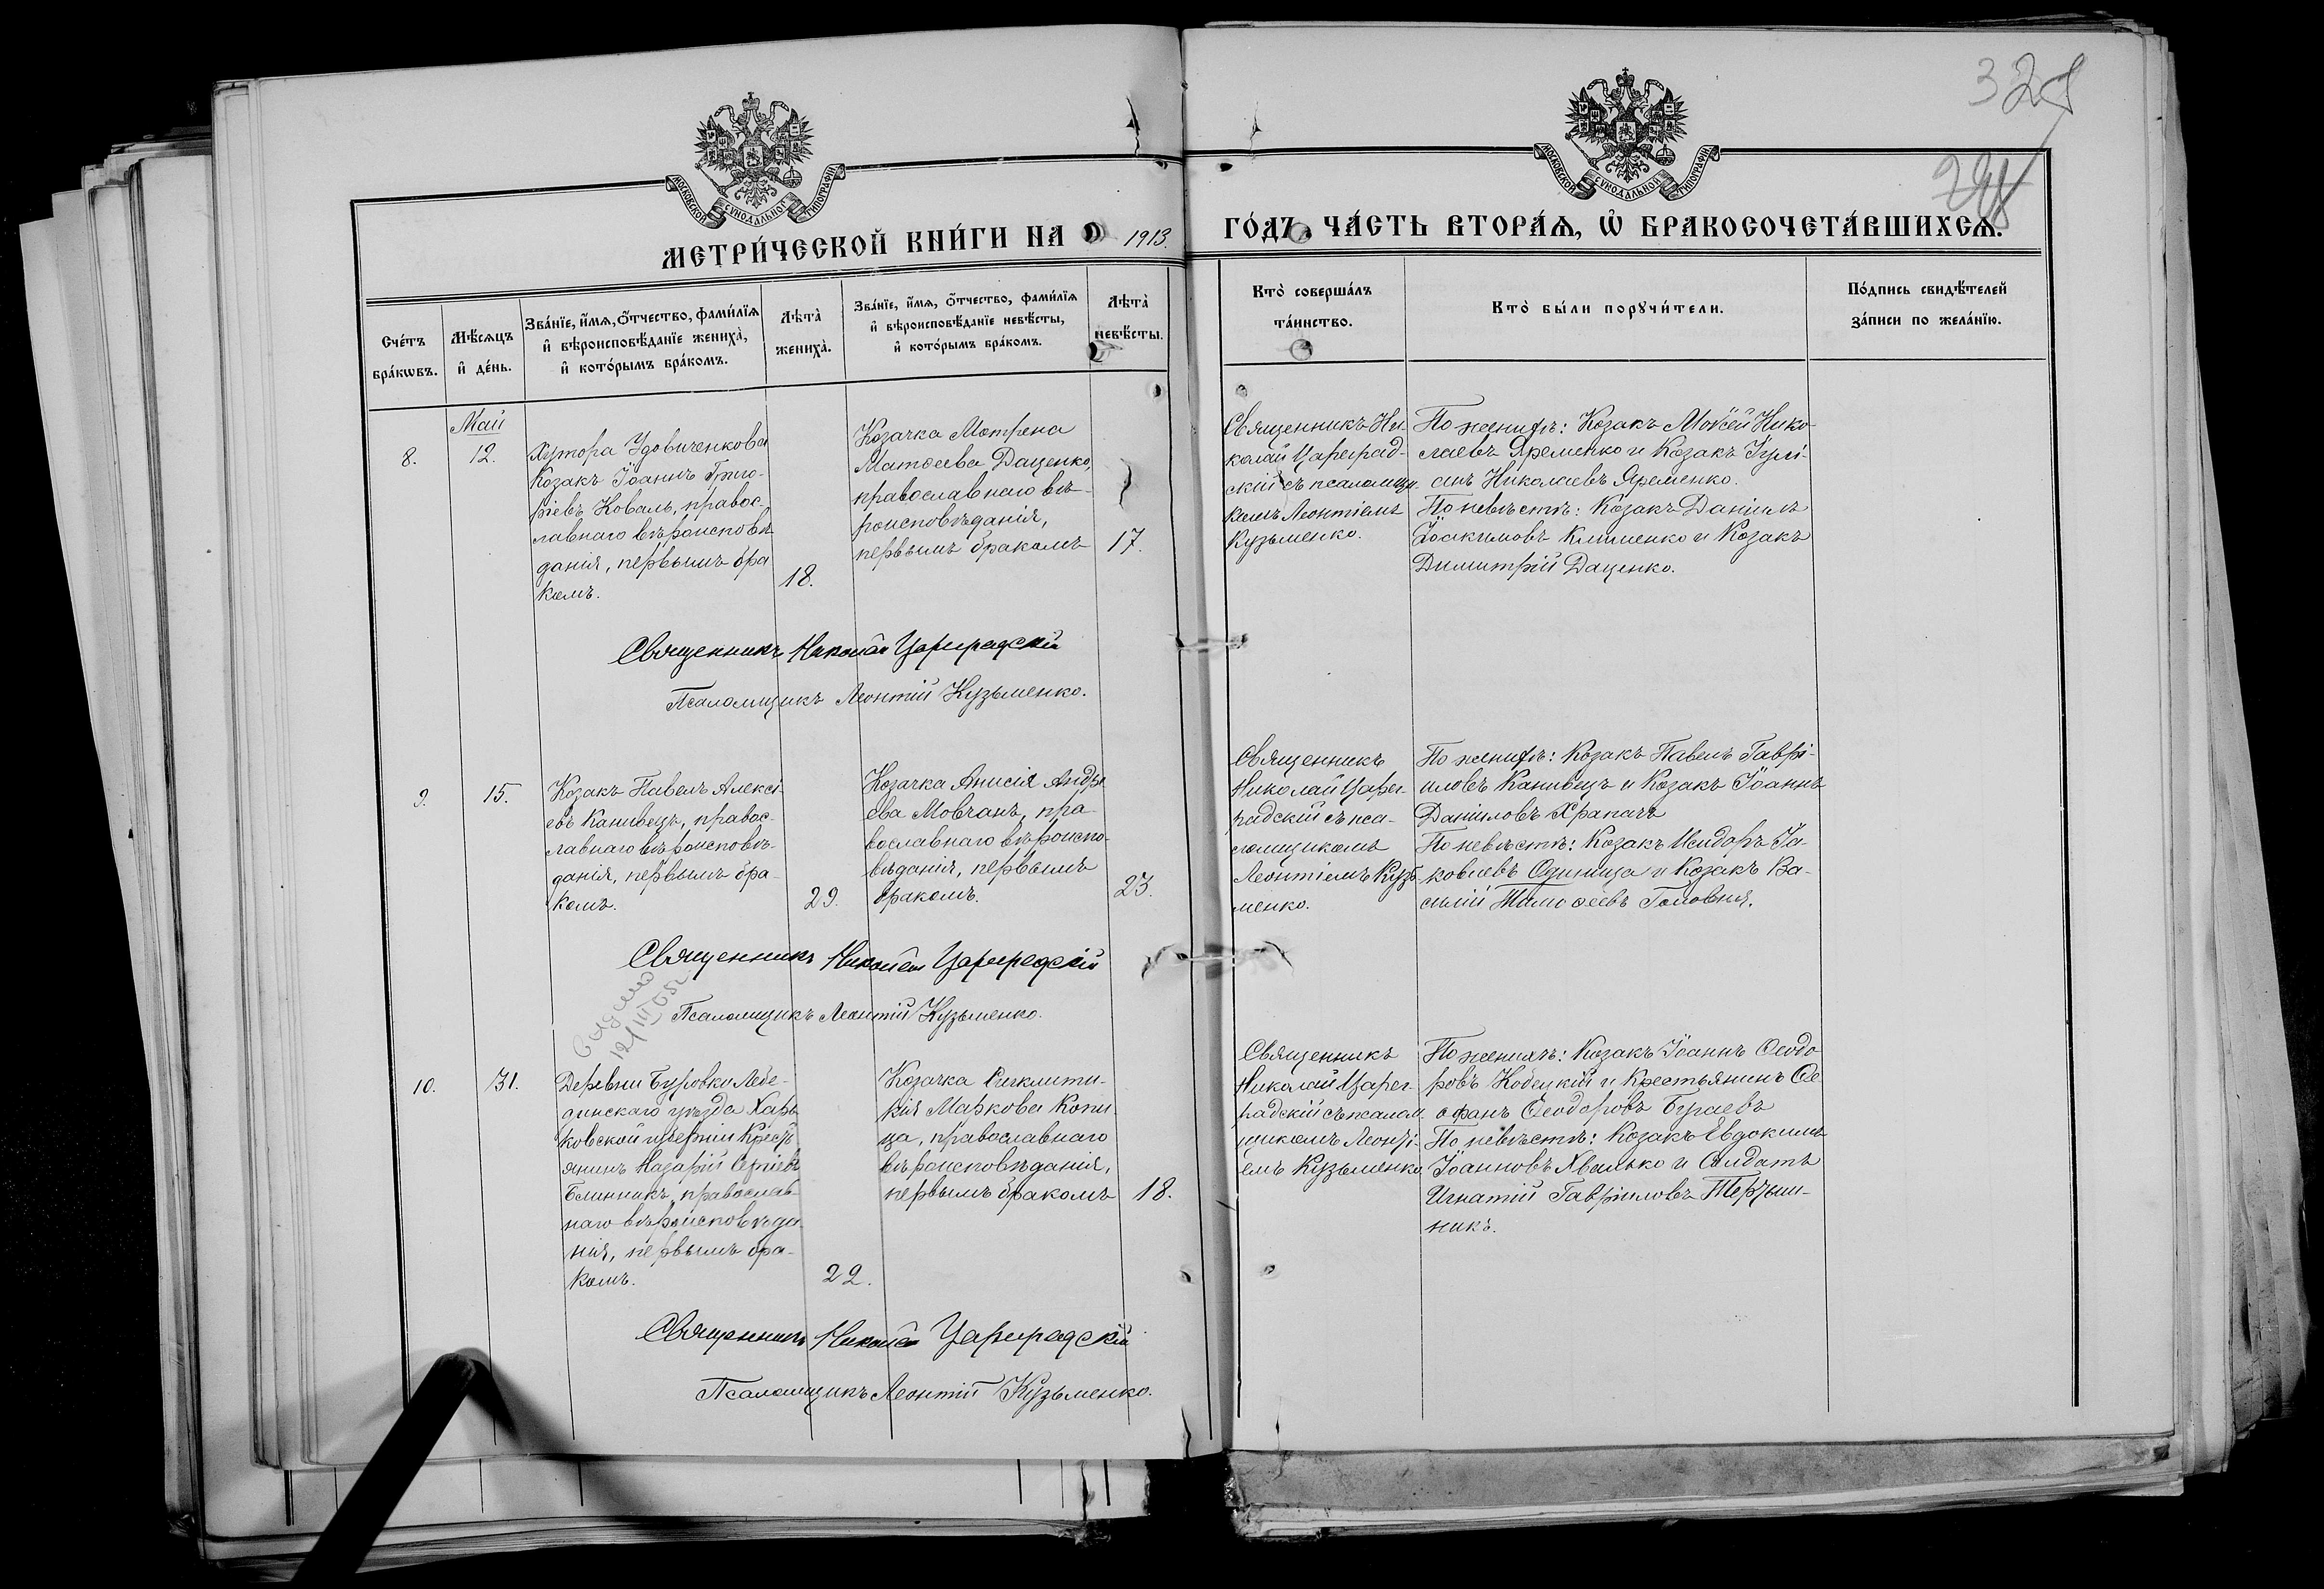 328
298
МОСКОВСКОЙ СУНОДАЛЬНОЙ ТИПОГРАФІИ
МОСКОВСКОЙ СУНОДАЛЬНОЙ ТИПОГРАФІИ
МЕТРИ́ЧЕСКОЙ КНИ́ГИ НА 1913.
ГО́ДЪ, ЧА́СТЬ ВТОРА́Ѧ, Ѡ҆ БРАКОСОЧЕТА́ВШИХСѦ.
Сче́тъ бра́кѡвъ.
Мѣ́сѧцъ и҆ де́нь.
Зва́нїе, и҆́мѧ, ѻ҆́тчество, фами́лїѧ
и҆ вѣроисповѣ́данїе жениха̀,
и҆ кото́рымъ бра́комъ.
Лѣта̀ жениха̀.
Зва́нїе, и҆́мѧ, ѻ҆́тчество, фами́лїѧ
и҆ вѣроисповѣ́данїе невѣ́сты,
и҆ кото́рымъ бра́комъ.
Лѣта̀ невѣ́сты.
Кто̀ соверша́лъ
та́инство.
Кто̀ бы́ли порꙋчи́тели.
По́дпись свидѣ́телей
за́писи по жела́нїю.
8.
Май
12.
Хутора Удовиченкова
Козакъ Іоаннъ Григо-
ріевъ Коваль, правос-
лавнаго вѣроисповѣ
данія, первымъ бра
комъ.
18.
Козачка Мотрена
Матѳеева Даценко,
православнаго вѣ-
роисповѣданія,
первымъ бракомъ
17.
Священникъ Ни-
колай Цареград-
скій съ псаломщи-
комъ Леонтіемъ
Кузьменко.
По женихѣ: Козакъ Моѵсей Нико-
лаевъ Яременко и Козакъ Іулі-
анъ Николаевъ Яременко.
По невѣстѣ: Козакъ Даніилъ
Іоакимовъ Клименко и Козакъ
Димитрій Даценко.
Священникъ Николай Цареградскій
Псаломщикъ Леонтій Кузьменко.
9.
15.
Козакъ Павелъ Алексі-
евъ Канивецъ, правос-
лавнаго вѣроисповѣ-
данія, первымъ бра-
комъ.
29.
Козачка Анисія Андре
ева Мовчанъ, пра-
вославнаго вѣроиспо-
вѣданія, первымъ
бракомъ.
23.
Священникъ
Николай Царег-
радскій съ пса-
ломщикомъ
Леонтіемъ Кузь
менко.
По женихѣ: Козакъ Павелъ Гаврі-
иловъ Канивецъ и Козакъ Іоаннъ
Даніиловъ Храпачъ
По невѣстѣ: Козакъ Исидоръ Іа-
ковлевъ Одиница и Козакъ Ва-
силій Тимоѳеевъ Головня.
Священникъ Николай Цареградскій
Псаломщикъ Леонтій Кузьменко.
10.
31.
Деревни Буровки Лебе-
динскаго уѣзда Харь
ковской губерніи Кресть
янинъ Назарій Сергіевъ
Блинникъ, православ-
наго вѣроисповѣда
нія, первымъ бра-
комъ.
22.
Козачка Сигклити-
кія Маркова Копи
ца, православнаго
вѣроисповѣданія,
первымъ бракомъ
18.
Священникъ
Николай Царег-
радскій съ псалом-
щикомъ Леонті-
емъ Кузьменко
По женихѣ: Козакъ Іоаннъ Ѳеодо
ровъ Кобецкій и Крестьянинъ Ѳе
офанъ Ѳеодоровъ Бураевъ
По невѣстѣ: Козакъ Евдокимъ
Іоанновъ Хвалько и Солдатъ
Игнатій Гавріиловъ Терзын-
никъ.
Священникъ Николай Цареградскій
Псаломщикъ Леонтій Кузьменко.